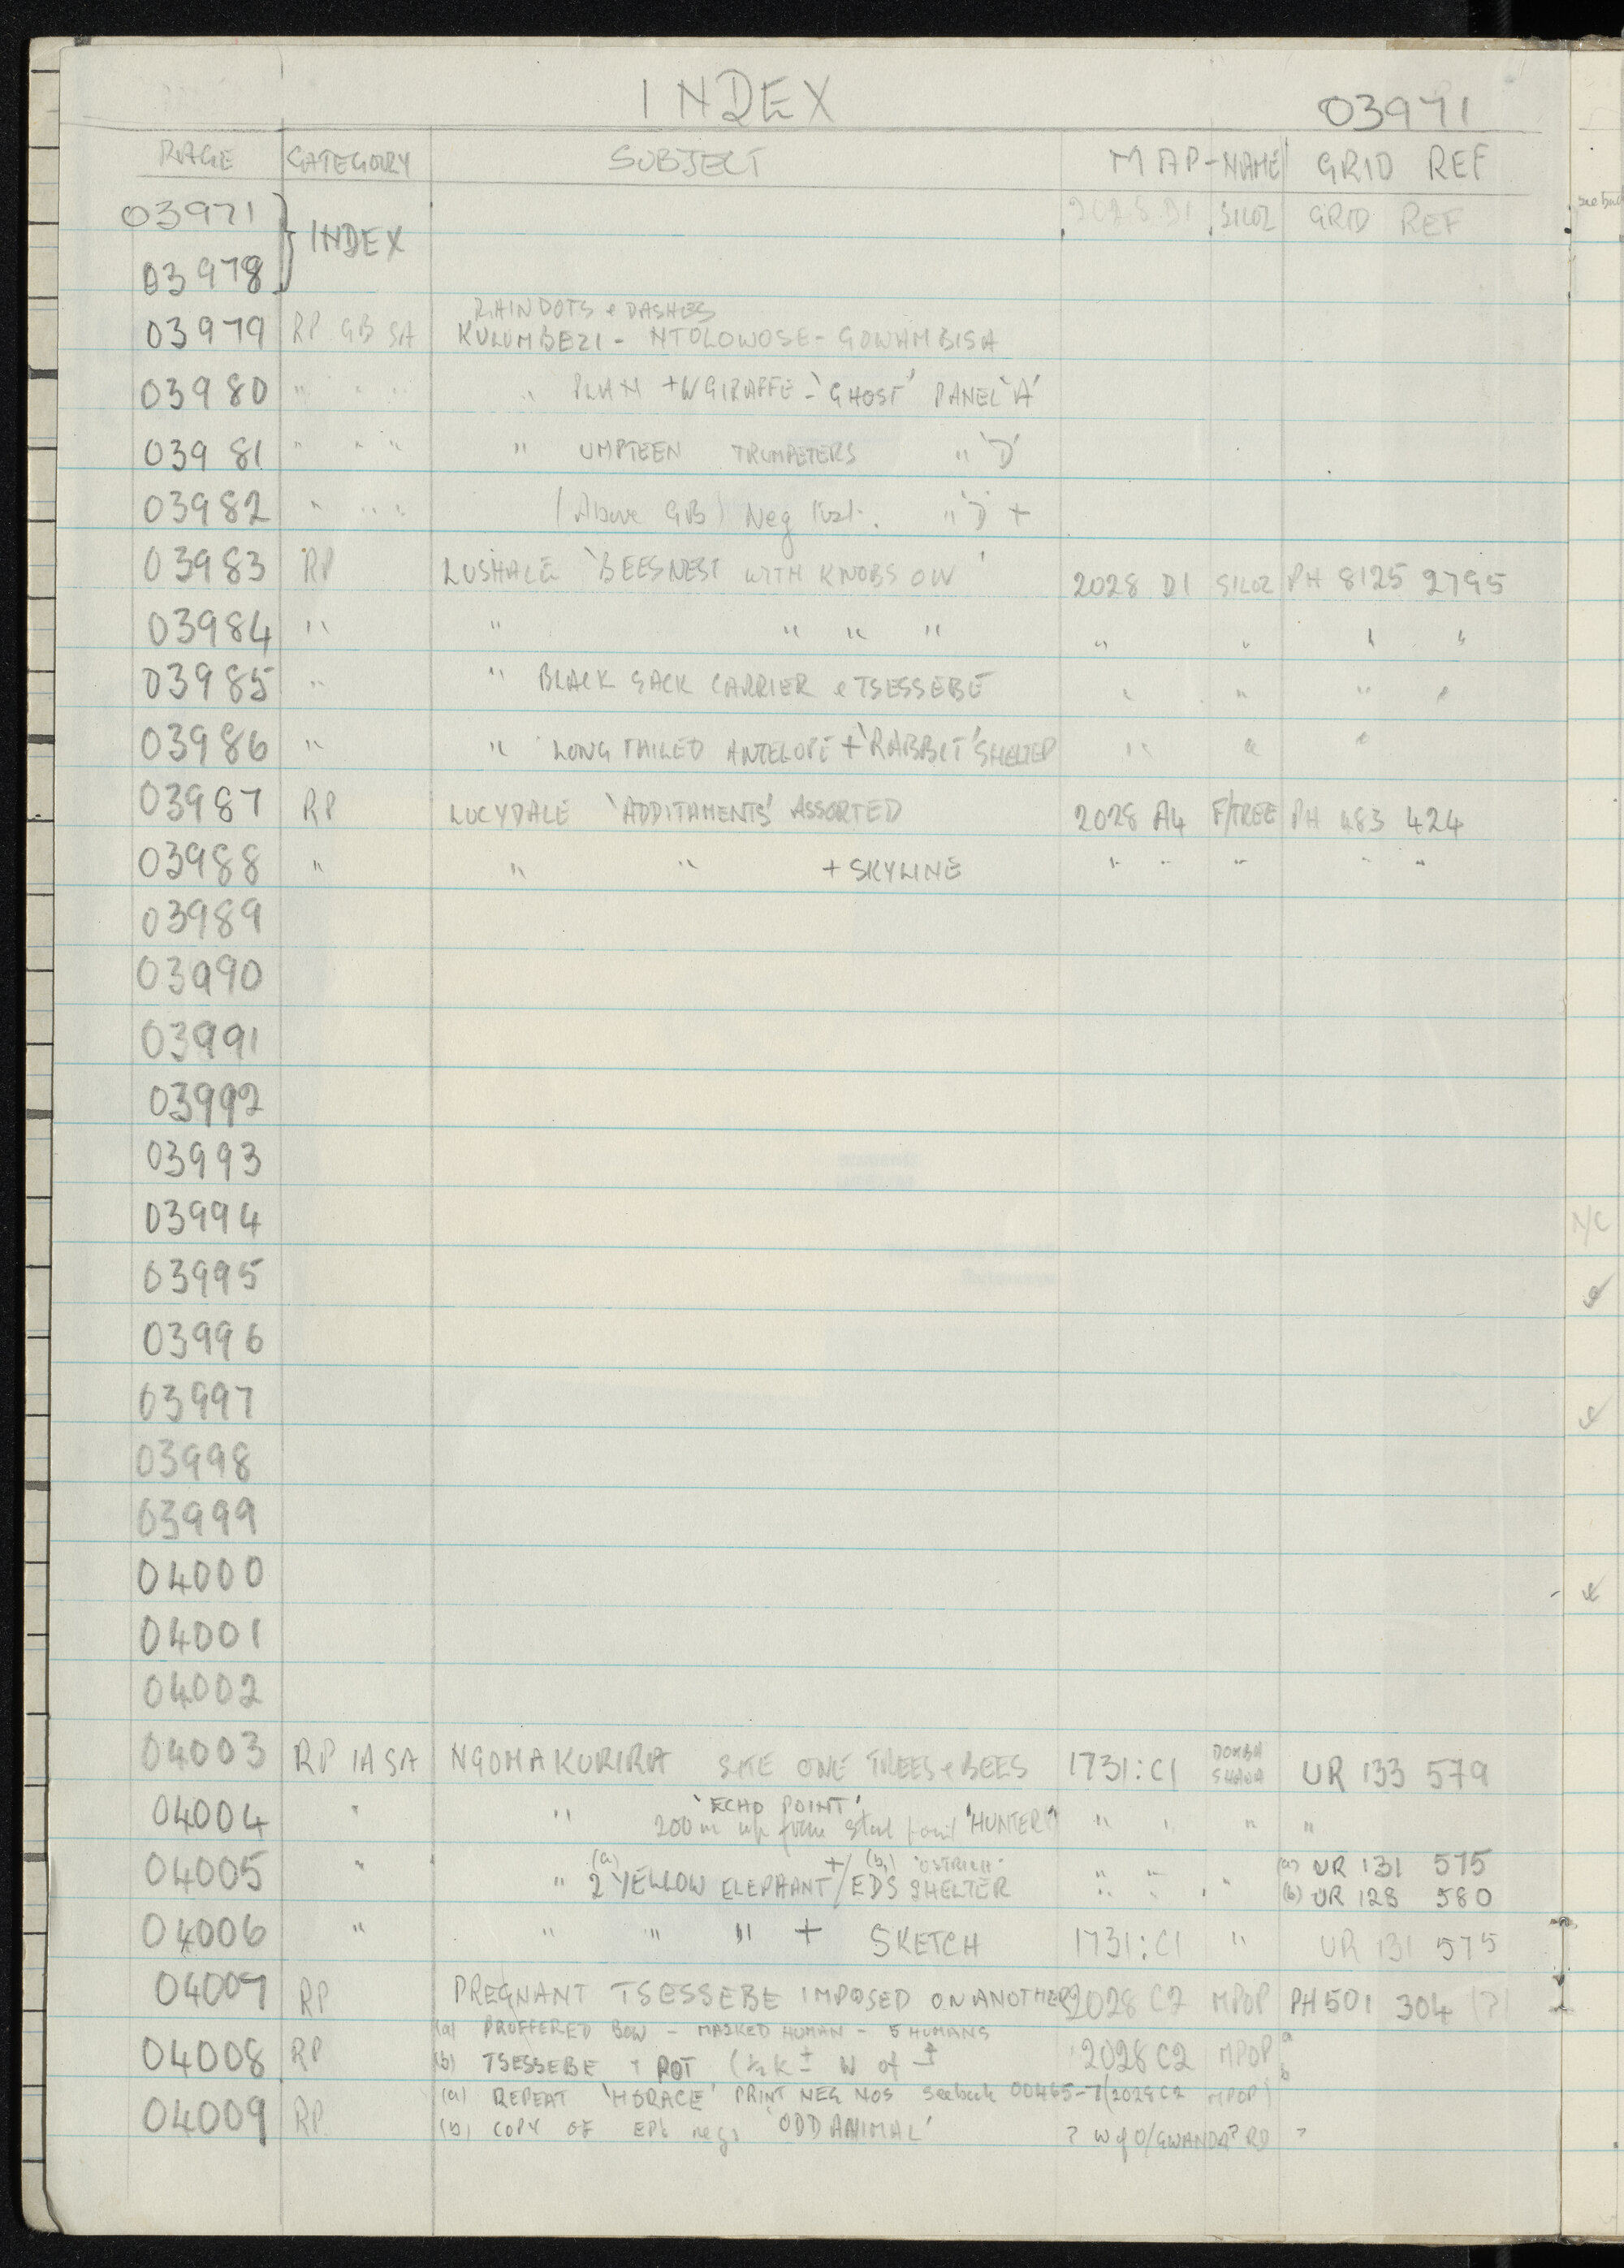 INDEX 03971
PAGE CATEGORY SUBJECT MAP-NAME GRID REF
03971 INDEX 2028 D1 SILOZ GRID REF
03978
RAINDOTS & DASHES
03979 RP GB SA KULUMBEZI - NTOLOWOSE - GOWAMBISA
03980 " " " " PLAN + W GIRAFFE - 'GHOST' PANEL 'A'
03981 " " " " UMPTEEN TRUMPETERS " 'D'
03982 " " " (Above GB) Neg " 'D' +
03983 RP LUSHALE 'BEESNEST WITH KNOBS ON' 2028 D1 SILOZ PH 8125 2795
03984 " " " " " " " " "
03985 " " BLACK SACK CARRIER & TSESSEBE " " " "
03986 " " LONG TAILED ANTELOPE + 'RABBIT' SHELTER " " "
03987 RP LUCYDALE 'ADDITAMENTS' ASSORTED 2028 A4 F/TREE PH 483 424
03988 " " " + SKYLINE " " " " "
03989
03990
03991
03992
03993
03994
03995
03996
03997
03998
03999
04000
04001
04002
04003 RP IA SA NGOMAKURIRA SITE ONE TREES & BEES 1731:C1 DOMBO SHAWA UR 133 579
'ECHO POINT'
04004 " " 200 m up from start point 'HUNTER' " " " "
04005 " " 2 (a) YELLOW ELEPHANT +/(b) 'OSTRICH' EDS SHELTER " " " (a) UR 131 575
(b) UR 128 580
04006 " " " " + SKETCH 1731:C1 " UR 131 575
04007 RP PREGNANT TSESSEBE IMPOSED ON ANOTHER 2028 C2 MPOP PH 501 304 (?)
(a) PROFFERED BOW - MASKED HUMAN - 5 HUMANS a
04008 RP (b) TSESSEBE + POT (½ K ± W of 2028 C2 MPOP b
(a) REPEAT 'HORACE' PRINT NEG NOS see back 00465-7 (2028 C2 MPOP)
04009 RP (b) COPY OF negs 'ODD ANIMAL' ? W of O/GWANDA? RD ?
N/C